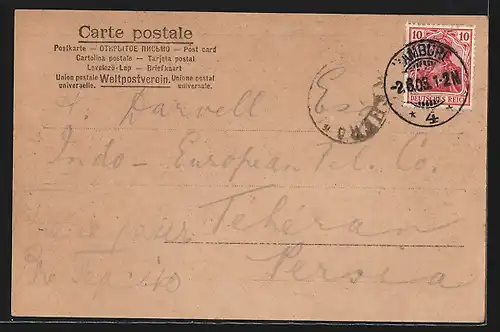 Carte postale
Postkarte — ОТКРЫТОЕ ПИСЬМО — Post card
Cartolina postale — Tarjeta postal
Levelező-Lap — Briefkaart
Union postale universelle. Weltpostverein. Unione postale universale.
10 10
DEUTSCHES REICH
HAMBURG
1-2N
* 4 *
H. Darvell Esq
Indo-European Tel. Co.
Téhéran
Persia